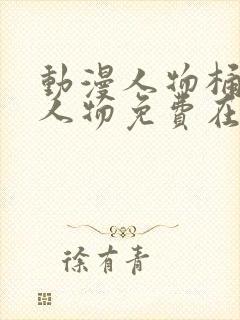 動漫人物桶
人物免費在
徐有青